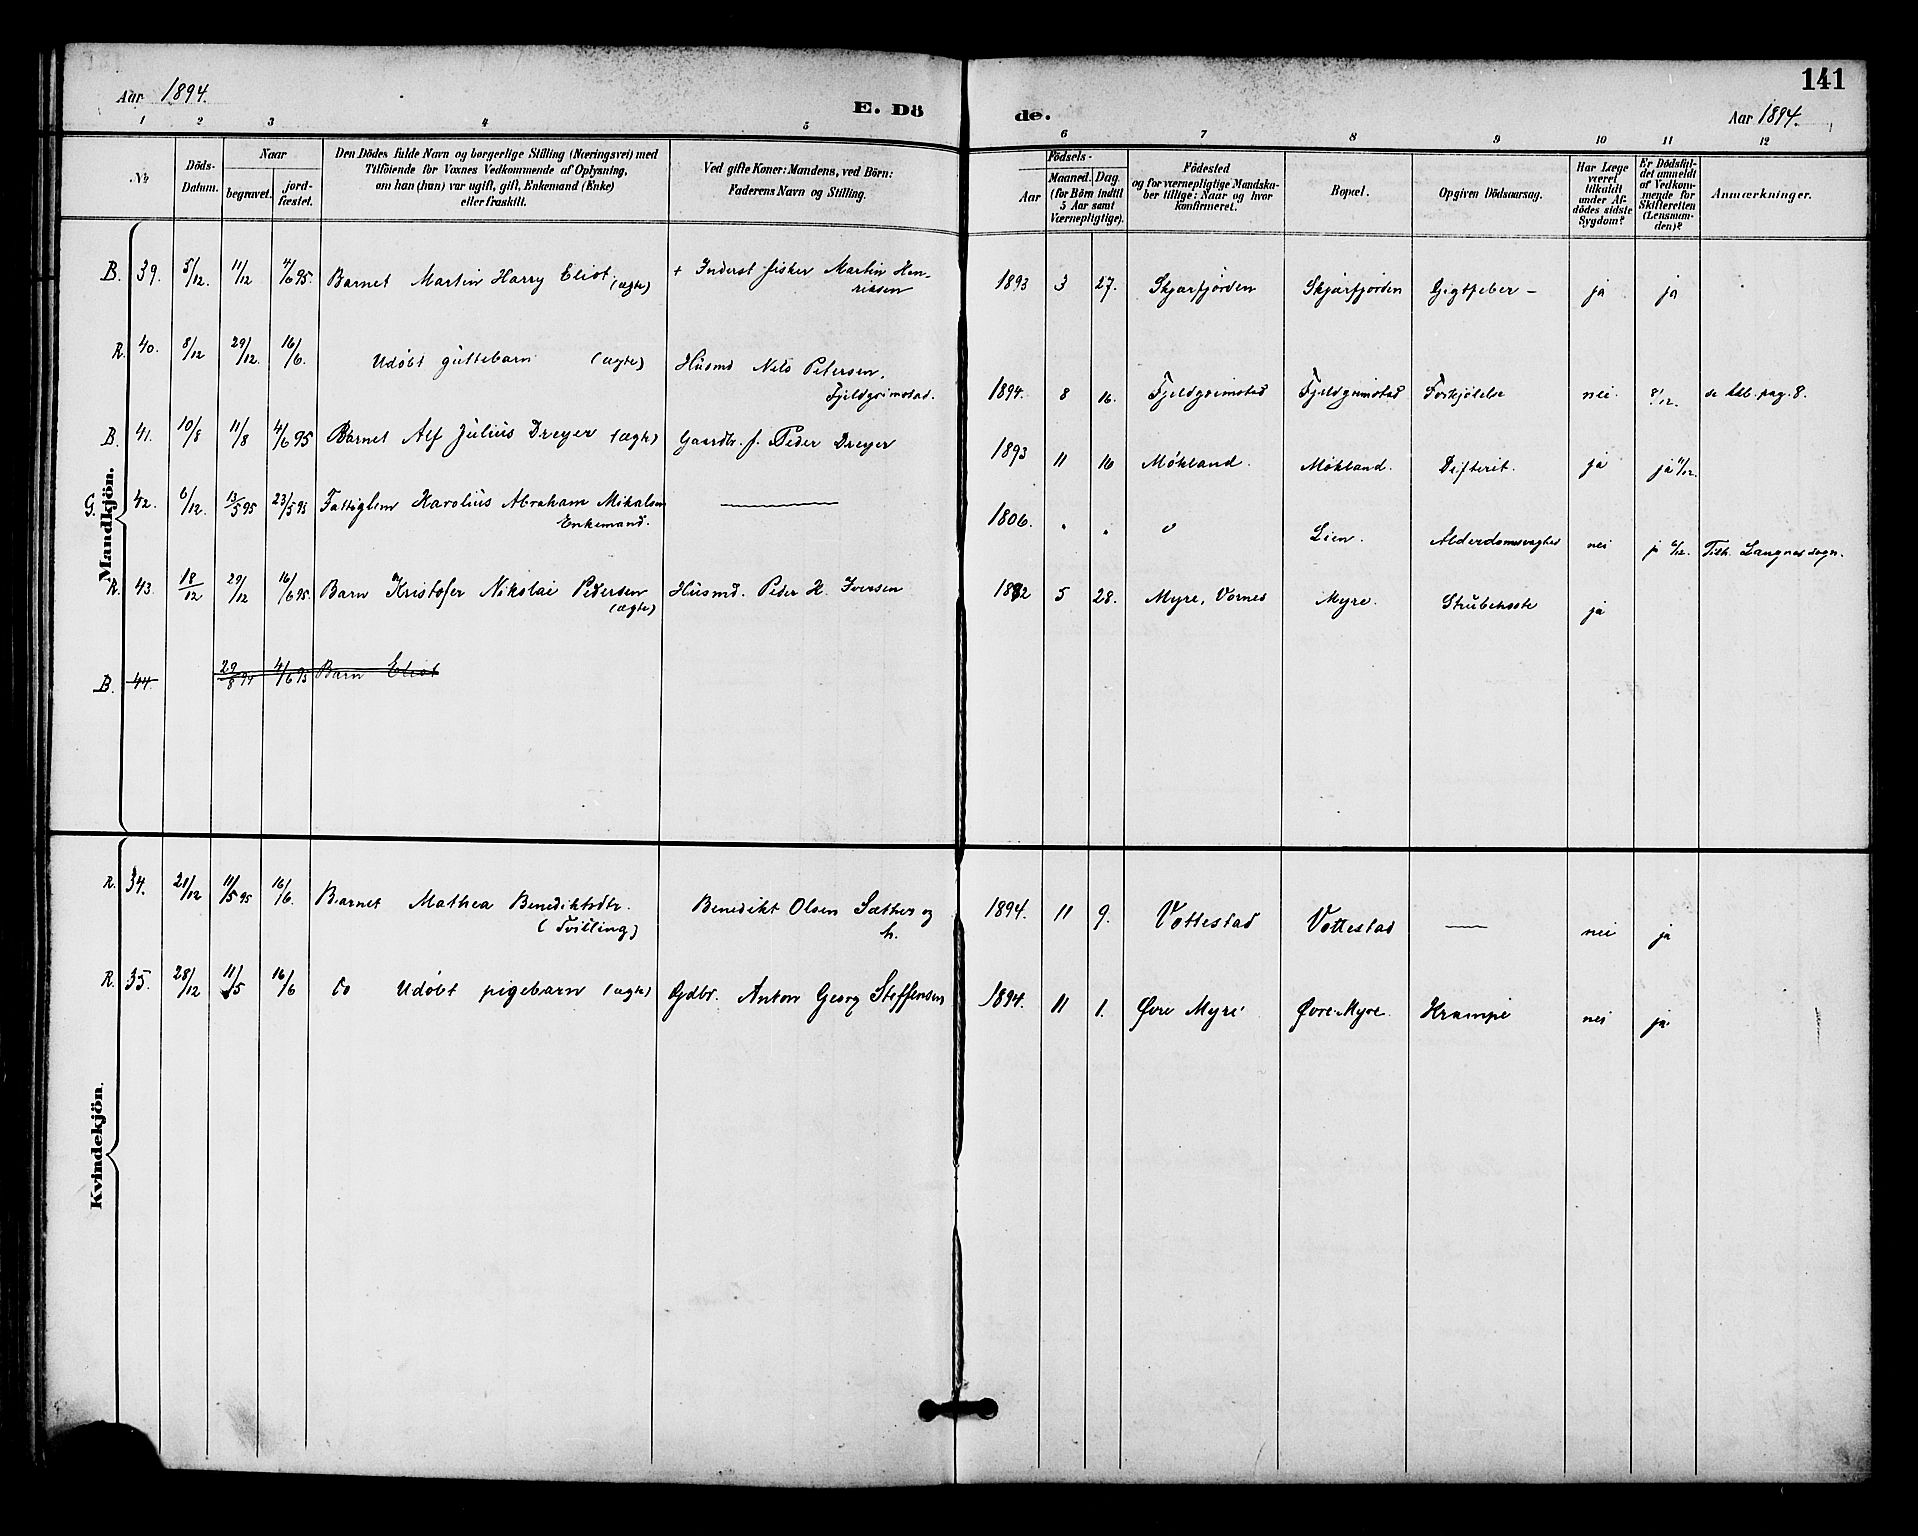 141
Aar 1894.
E. Dö de.
Aar 1894.
1 2 3 4 5 6 7 8 9 10 11 12
No
Döds-
Datum.
Naar
begravet.
jord-
fæstet.
Den Dödes fulde Navn og borgerlige Stilling (Næringsvei) med
Tilföiende for Voxnes Vedkommende af Oplysning,
om han (hun) var ugift, gift, Enkemand (Enke)
eller fraskilt.
Ved gifte Koner: Mandens, ved Börn:
Faderens Navn og Stilling.
Födsels-
Aar
Maaned.
Dag.
(for Börn indtil
5 Aar samt
Værnepligtige).
Födested
og for værnepligtige Mandska-
ber tillige: Naar og hvor
konfirmeret.
Bopæl.
Opgiven Dödsaarsag.
Har Læge
været
tilkaldt
under Af-
dödes sidste
Sygdom?
Er Dödsfal-
det anmeldt
af Vedkom-
mende for
Skifteretten
(Lensman-
den)?
Anmærkninger.
Mandkjön.
B. 39. 5/12. 11/12 4/6 95. Barnet Martin Harry Eliot. (ægte) + Inderst fisker Martin Hen-
riksen
1893 3 27. Skjærfjorden Skjærfjorden Gigtfeber – ja ja
R. 40. 8/12 29/12. 16/6. Udøbt guttebarn (ægte) Husmd Nils Petersen,
Fjeldgrimstad.
1894. 8 16. Fjeldgrimstad Fjeldgrimstad Forkjølelse nei. 8/12. pag. 8.
B. 41. 10/8 11/8 4/6 95 Barnet Alf Julius Dreyer (ægte) Gaardbr. f. Peder Dreyer
1893 11 10 Møkland. Møkland. Difterit. ja ja
G. 42. 6/12. 13/5 95 23/5 95 Fattiglem Karolius Abraham Mikalsen
Enkemand.
1806. Lien. Alderdomssvaghed nei Tilh. Langnes sogn.
R. 43. 18/12 29/12 16/6 95. Barn Kristofer Nikolai Pedersen
(ægte)
Husmd. Peder H. Iversen
1882 5 28. Myre, Vornes Myre. Strubehoste ja
B. 44. 29/8 94 4/6 95 Barn Eliot
Kvindekjön.
R. 34. 21/12 11/5 95 16/6. Barnet Mathea Benediktsdtr.
(Tvilling)
Benedikt Olsen Sæther og
h.
1894. 11 9. Vottestad Vottestad nei ja
R. 35. 28/12 11/5 16/6 Do Udøbt pigebarn (ægte) Gdbr. Anton Georg Steffensen
1894. 11 1. Øvre Myre Øvre Myre Krampe nei ja